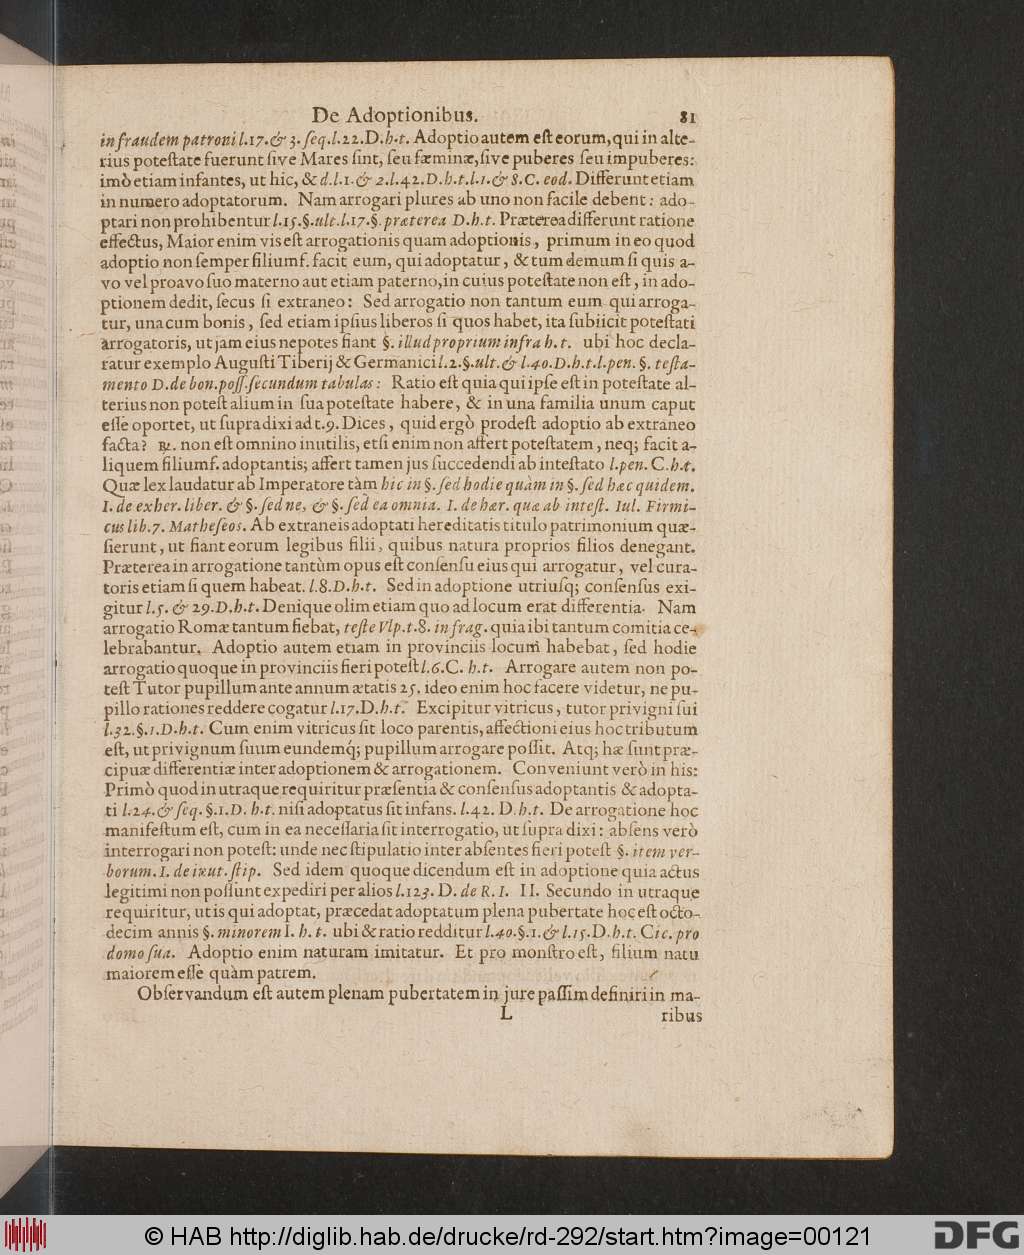 De Adoptionibus. 81
in fraudem patroni l.17.& 3. ſeq.l.22.D.h.t. Adoptio autem eſt eorum, qui in alte-
rius poteſtate fuerunt ſive Mares ſint, ſeu fæminæ, ſive puberes ſeu impuberes:
imò etiam infantes, ut hic, & d.l.1.& 2.l.42.D.h.t.l.1.& 8.C. eod. Differunt etiam
in numero adoptatorum. Nam arrogari plures ab uno non facile debent: ado-
ptari non prohibentur l.15.§.ult.l.17.§. præterea D.h.t. Præterea differunt ratione
effectus, Maior enim vis eſt arrogationis quam adoptionis, primum in eo quod
adoptio non ſemper filiumf. facit eum, qui adoptatur, & tum demum ſi quis a-
vo vel proavo ſuo materno aut etiam paterno, in cuius poteſtate non eſt, in ado-
ptionem dedit, ſecus ſi extraneo: Sed arrogatio non tantum eum qui arroga-
tur, una cum bonis, ſed etiam ipſius liberos ſi quos habet, ita ſubiicit poteſtati
arrogatoris, ut jam eius nepotes fiant §. illud proprium infra h. t. ubi hoc decla-
ratur exemplo Auguſti Tiberij & Germanici l.2.§.ult.& l.40.D.h.t.l.pen. §. teſta-
mento D.de bon.poſſ.ſecundum tabulas: Ratio eſt quia qui ipſe eſt in poteſtate al-
terius non poteſt alium in ſua poteſtate habere, & in una familia unum caput
eſſe oportet, ut ſupra dixi ad t.9. Dices, quid ergò prodeſt adoptio ab extraneo
facta? ꝶ. non eſt omnino inutilis, etſi enim non affert poteſtatem, neq; facit a-
liquem filiumf. adoptantis; affert tamen jus ſuccedendi ab inteſtato l.pen. C.h.t.
Quæ lex laudatur ab Imperatore tàm hic in §. ſed hodie quàm in §. ſed hæc quidem.
I. de exher. liber. & §. ſed ne, & §. ſed ea omnia. I. de hær. quæ ab inteſt. Iul. Firmi-
cus lib.7. Matheſeos. Ab extraneis adoptati hereditatis titulo patrimonium quæ-
ſierunt, ut fiant eorum legibus filii, quibus natura proprios filios denegant.
Præterea in arrogatione tantùm opus eſt conſenſu eius qui arrogatur, vel cura-
toris etiam ſi quem habeat. l.8.D.h.t. Sed in adoptione utriuſq; conſenſus exi-
gitur l.5. & 29.D.h.t. Denique olim etiam quo ad locum erat differentia. Nam
arrogatio Romæ tantum fiebat, teſte Vlp.t.8. in frag. quia ibi tantum comitia ce-
lebrabantur. Adoptio autem etiam in provinciis locum habebat, ſed hodie
arrogatio quoque in provinciis fieri poteſt l.6.C. h.t. Arrogare autem non po-
teſt Tutor pupillum ante annum ætatis 25. ideo enim hoc facere videtur, ne pu-
pillo rationes reddere cogatur l.17.D.h.t. Excipitur vitricus, tutor privigni ſui
l.32.§.1.D.h.t. Cum enim vitricus ſit loco parentis, affectioni eius hoc tributum
eſt, ut privignum ſuum eundemq́; pupillum arrogare poſſit. Atq; hæ ſunt præ-
cipuæ differentiæ inter adoptionem & arrogationem. Conveniunt verò in his:
Primò quod in utraque requiritur præſentia & conſenſus adoptantis & adopta-
ti l.24.& ſeq. §.1.D. h.t. niſi adoptatus ſit infans. l.42. D.h.t. De arrogatione hoc
manifeſtum eſt, cum in ea neceſſaria ſit interrogatio, ut ſupra dixi: abſens verò
interrogari non poteſt: unde nec ſtipulatio inter abſentes fieri poteſt §. item ver-
borum. I. de inut. ſtip. Sed idem quoque dicendum eſt in adoptione quia actus
legitimi non poſſunt expediri per alios l.123. D. de R. I. II. Secundo in utraque
requiritur, ut is qui adoptat, præcedat adoptatum plena pubertate hoc eſt octo-
decim annis §. minorem I. h. t. ubi & ratio redditur l.40.§.1.& l.15.D.h.t. Cic. pro
domo ſua. Adoptio enim naturam imitatur. Et pro monſtro eſt, filium natu
maiorem eſſe quàm patrem.
Obſervandum eſt autem plenam pubertatem in jure paſſim definiri in ma-
L ribus
© HAB http://diglib.hab.de/drucke/rd-292/start.htm?image=00121 DFG